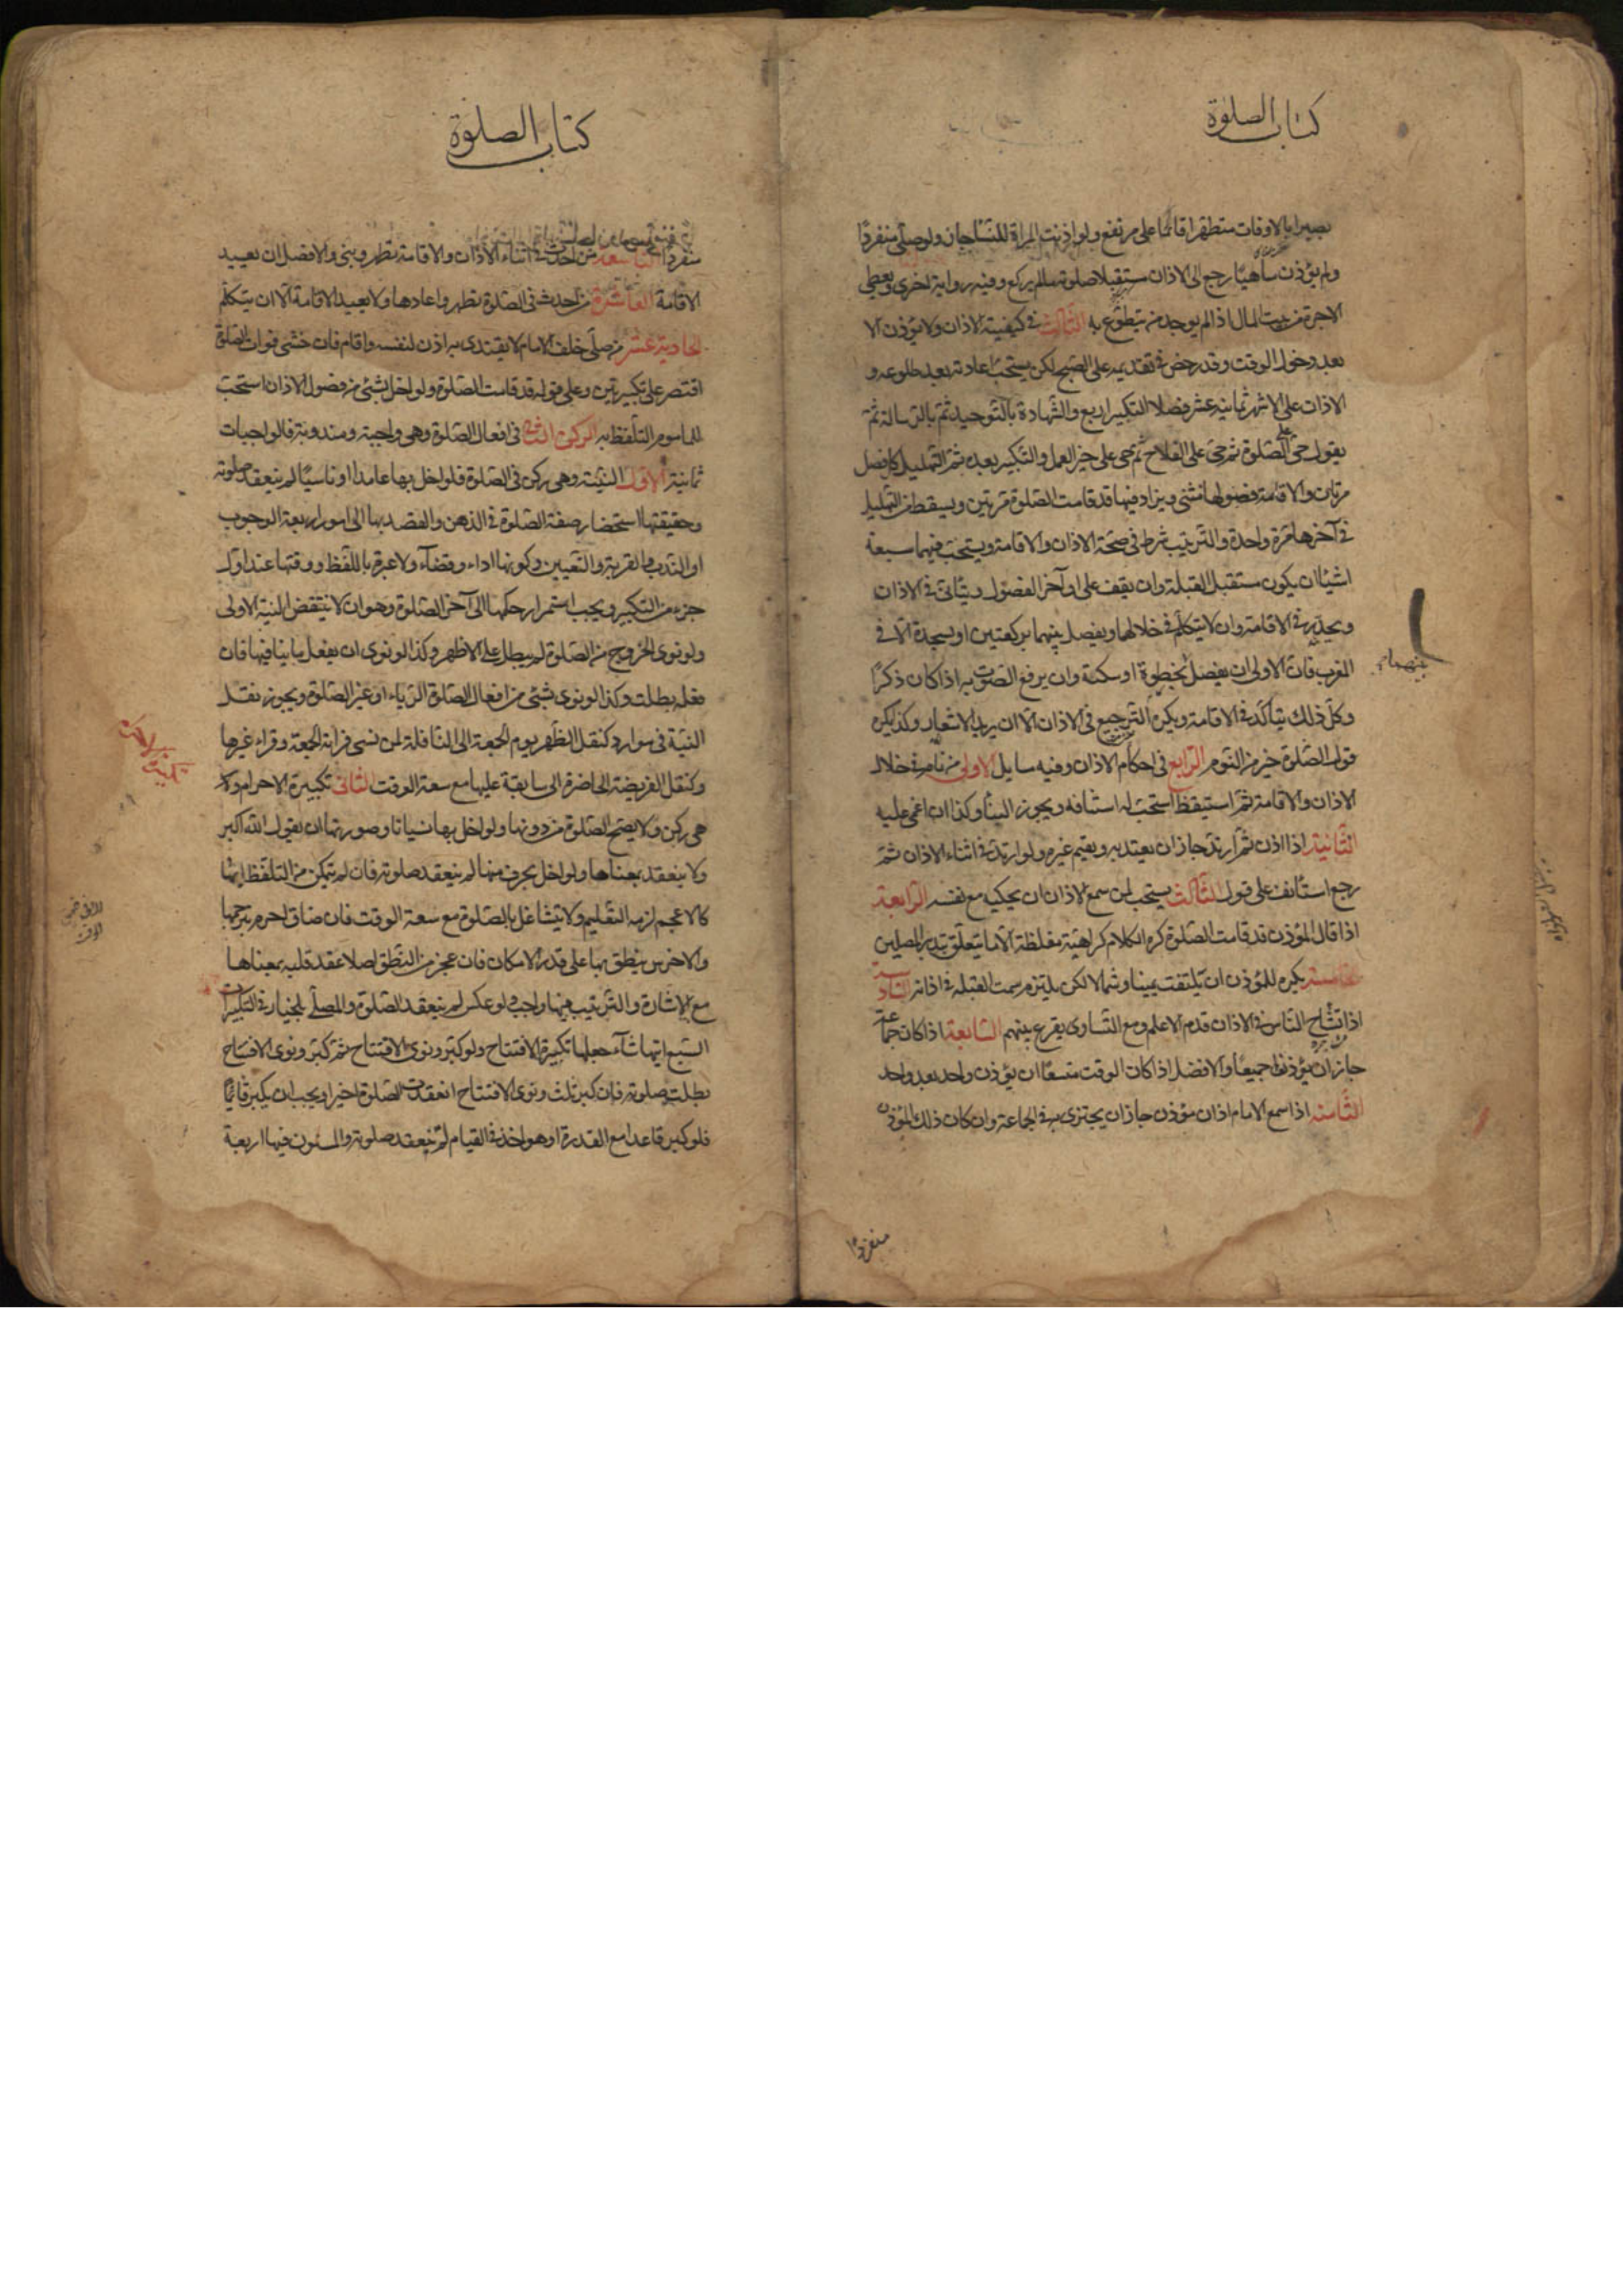 كتاب الصلوة
بصيرا بالاوقات متطهرا قائما على مرتفع ولو اذنت المراة للنساء جاز ولو صلى منفردًا
ولم يؤذن ساهيًا رجع الى الاذان مستقبلا صلوته ما لم يركع وفيه رواية اخرى ويعطى
الاجرة من بيت المال اذا لم يوجد من يتطوع به الثالث في كيفية الاذان ولا يؤذن الا
بعد دخول الوقت وقد رخص في تقديمه على الصبح لكن يستحب اعادته بعد طلوعه و
الاذان على الاشهر ثمانية عشر فصلا التكبير اربع والشهادة بالتوحيد ثم بالرسالة ثم
يقول حى على الصلوة ثم حى على الفلاح ثم حى على خير العمل والتكبير بعده ثم التهليل كل فصل
مرتان والاقامة فصولها مثنى ويزاد فيها قد قامت الصلوة مرتين ويسقط من التهليل
في آخرها مرة واحدة والترتيب شرط في صحة الاذان والاقامة ويستحب فيهما سبعة
اشياء ان يكون مستقبل القبلة وان يقف على اواخر الفصول ويتانى في الاذان
ويحدر في الاقامة وان لا يتكلم في خلالها ويفصل بينهما بركعتين او سجدة الا في
المغرب فان الاولى ان يفصل بخطوة او سكتة وان يرفع الصوت به اذا كان ذكرًا
وكل ذلك يتاكد في الاقامة ويكره الترجيع في الاذان الا ان يريد الاشعار وكذا يكره
قول الصلوة خير من النوم الرابع في احكام الاذان وفيه مسايل الاولى من نام في خلال
الاذان والاقامة ثم استيقظ استحب له استئنافه ويجوز له البناء وكذا ان اغمى عليه
الثانية اذا اذن ثم ارتد جاز ان يعتد به ويقيم غيره ولو ارتد في اثناء الاذان ثم
رجع استانف على قول الثالث يستحب لمن سمع الاذان ان يحكيه مع نفسه الرابعة
اذا قال المؤذن قد قامت الصلوة كره الكلام كراهية مغلظة الا ما يتعلق بتدبير المصلين
الخامسة يكره للمؤذن ان يلتفت يمينا وشمالا لكن يلتزم سمت القبلة في اذانه السادسة
اذا تشاح الناس في الاذان قدم الاعلم ومع التساوى يقرع بينهم السابعة اذا كان جماعة
جاز ان يؤذنوا جميعًا والافضل اذا كان الوقت متسعًا ان يؤذن واحد بعد واحد
الثامنة اذا سمع الامام اذان مؤذن جاز ان يجتزى به في الجماعة وان كان ذلك المؤذن
منفردًا
كتاب الصلوة
منفردًا التاسعة من احدث في اثناء الاذان والاقامة تطهر وبنى والافضل ان يعيد
الاقامة العاشرة من احدث في الصلوة تطهر واعادها ولا يعيد الاقامة الا ان يتكلم
الحادية عشر من صلى خلف الامام لا يقتدى به اذن لنفسه واقام فان خشى فوات الصلوة
اقتصر على تكبيرتين وعلى قوله قد قامت الصلوة ولو اخل بشئ من فصول الاذان استحب
للماموم التلفظ به الركن الثانى في افعال الصلوة وهى واجبة ومندوبة فالواجبات
ثمانية الاول النية وهى ركن في الصلوة فلو اخل بها عامدا او ناسيًا لم ينعقد صلوته
وحقيقتها استحضار صفة الصلوة في الذهن والقصد بها الى امور اربعة الوجوب
او الندب والقربة والتعيين وكونها اداء وقضآء ولا عبرة باللفظ ووقتها عند اول
جزء من التكبير ويجب استمرار حكمها الى آخر الصلوة وهو ان لا ينتقض النية الاولى
ولو نوى الخروج من الصلوة لم يبطل على الاظهر وكذا لو نوى ان يفعل ما ينافيها فان
فعله بطلت وكذا لو نوى بشئ من افعال الصلوة الرياء او غير الصلوة ويجوز نقل
النية في موارد كنقل الظهر يوم الجمعة الى النافلة لمن نسى قراءة الجمعة وقراء غيرها
وكنقل الفريضة الحاضرة الى سابقة عليها مع سعة الوقت الثانى تكبيرة الاحرام و
هى ركن ولا يصح الصلوة من دونها ولو اخل بها نسيانا وصورتها ان يقول الله اكبر
ولا ينعقد بمعناها ولو اخل بحرف منها لم ينعقد صلوته فان لم يتمكن من التلفظ بها
كالاعجم لزمه التعليم ولا يتشاغل بالصلوة مع سعة الوقت فان ضاق احرم بترجمتها
والاخرس ينطق بها على قدر الامكان فان عجز من النطق اصلا عقد قلبه بمعناها
مع الاشارة والترتيب فيها واجب ولو عكس لم ينعقد الصلوة والمصلى بالخيار في التكبيرات
السبع ايتها شآء جعلها تكبيرة الافتتاح ولو كبر ونوى الافتتاح ثم كبر ونوى الافتتاح
بطلت صلوته فان كبر ثلث ونوى الافتتاح انعقدت الصلوة اخيرا ويجب ان يكبر قائمًا
فلو كبر قاعدا مع القدرة او هو اخذ في القيام لم ينعقد صلوته والمسنون فيها اربعة